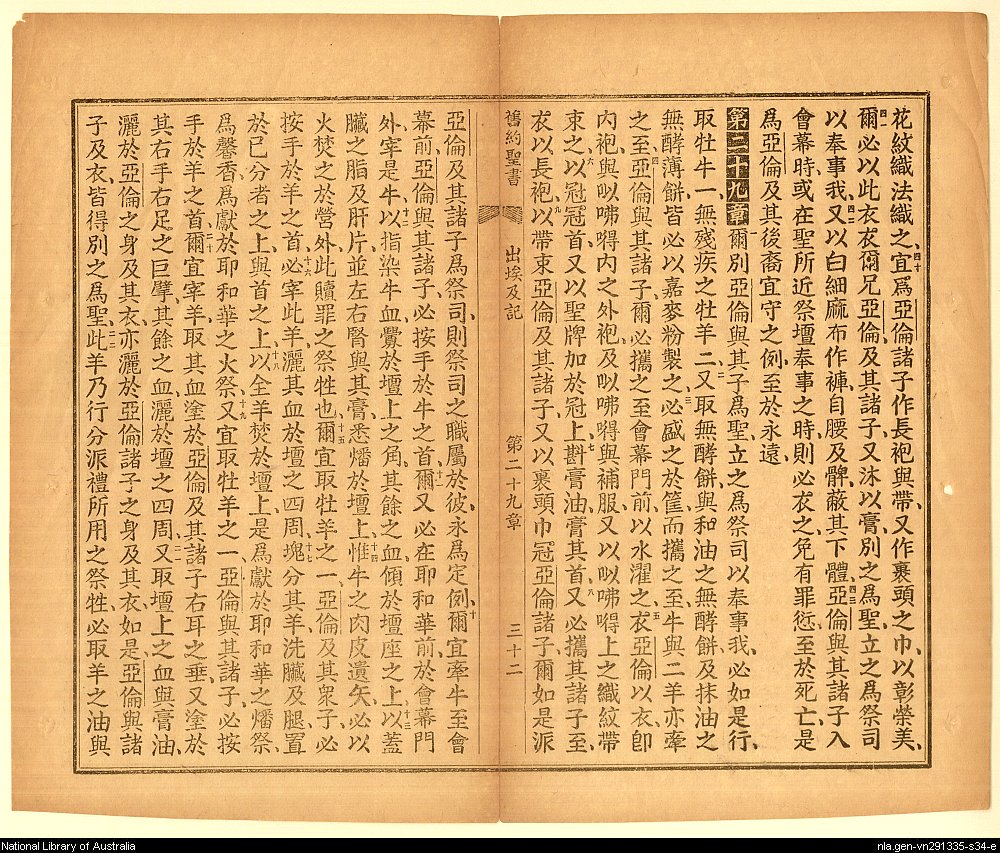 花紋織法織之宜爲亞倫諸子作長袍與帶又作裹頭之巾以彰榮美四十
爾必以此衣衣爾兄亞倫及其諸子又沐以膏別之爲聖立之爲祭司四一
以奉事我又以白細麻布作褲自腰及髀蔽其下體亞倫與其諸子入四二四三
會幕時或在聖所近祭壇奉事之時則必衣之免有罪愆至於死亡是
爲亞倫及其後裔宜守之例至於永遠
第二十九章一爾別亞倫與其子爲聖立之爲祭司以奉事我必如是行
取牡牛一無殘疾之牡羊二又取無酵餅與和油之無酵餅及抹油之二
無酵薄餅皆必以嘉麥粉製之必盛之於筐而攜之至牛與二羊亦牽三
之至亞倫與其諸子爾必攜之至會幕門前以水濯之衣亞倫以衣卽四五
內袍與㕥咈嘚內之外袍及㕥咈嘚與補服又以㕥咈嘚上之織紋帶
束之以冠冠首又以聖牌加於冠上斟膏油膏其首又必攜其諸子至六七八
衣以長袍以帶束亞倫及其諸子又以裹頭巾冠亞倫諸子爾如是派九
舊約聖書 出埃及記 第二十九章 三十二
亞倫及其諸子爲祭司則祭司之職屬於彼永爲定例爾宜牽牛至會十
幕前亞倫與其諸子必按手於牛之首爾又必在耶和華前於會幕門十一
外宰是牛以指染牛血釁於壇上之角其餘之血傾於壇座之上以蓋十二十三
臟之脂及肝片並左右腎與其膏悉燔於壇上惟牛之肉皮遺矢必以十四
火焚之於營外此贖罪之祭牲也爾宜取牡羊之一亞倫及其衆子必十五
按手於羊之首必宰此羊灑其血於壇之四周塊分其羊洗臟及腿置十六十七
於已分者之上與首之上以全羊焚於壇上是爲獻於耶和華之燔祭十八
爲馨香爲獻於耶和華之火祭又宜取牡羊之一亞倫與其諸子必按十九
手於羊之首爾宜宰羊取其血塗於亞倫及其諸子右耳之垂又塗於二十
其右手右足之巨擘其餘之血灑於壇之四周又取壇上之血與膏油二一
灑於亞倫之身及其衣亦灑於亞倫諸子之身及其衣如是亞倫與諸
子及衣皆得別之爲聖此羊乃行分派禮所用之祭牲必取羊之油與二二
National Library of Australia
nla.gen-vn291335-s34-e